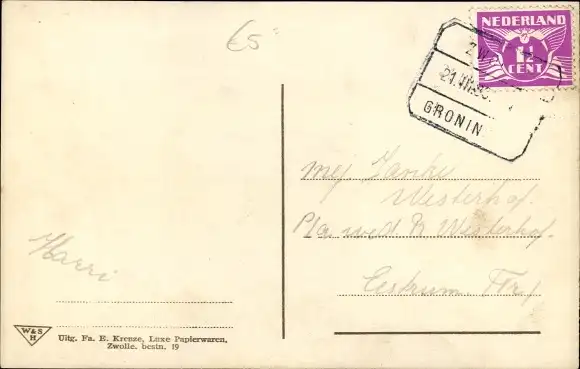 €5
NEDERLAND
1½
CENT
ZW
21.VII
GRONIN
mej Janke
Westerhof.
p/a wed R Westerhof.
Eestrum Frl
Harri
W&S
H
Uitg. Fa. E. Krenze, Luxe Papierwaren,
Zwolle. bestn. 19